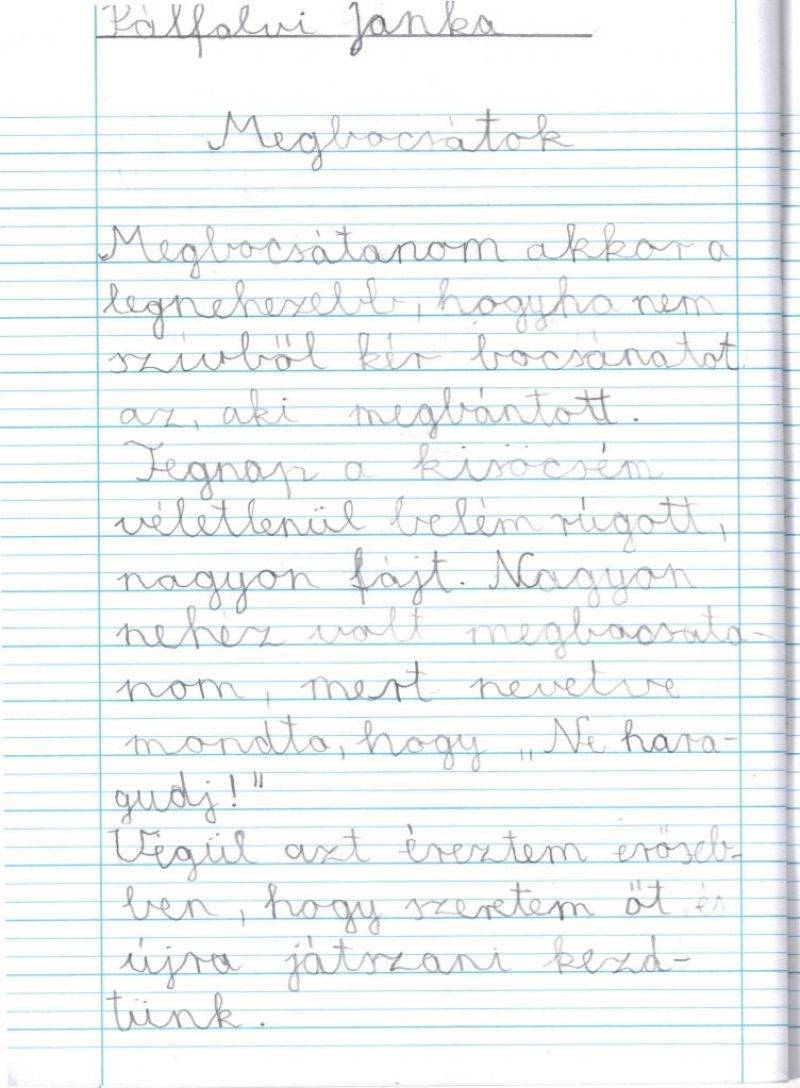 Pálfalvi Janka
Megbocsátok
Megbocsátanom akkor a
legnehezebb, hogyha nem
szívből kér bocsánatot
az, aki megbántott.
Tegnap a kisöcsém
véletlenül belém rúgott,
nagyon fájt. Nagyon
nehéz volt megbocsáta-
nom, mert nevetve
mondta, hogy „Ne hara-
gudj!"
Végül azt éreztem erőseb-
ben, hogy szeretem őt és
újra játszani kezd-
tünk.